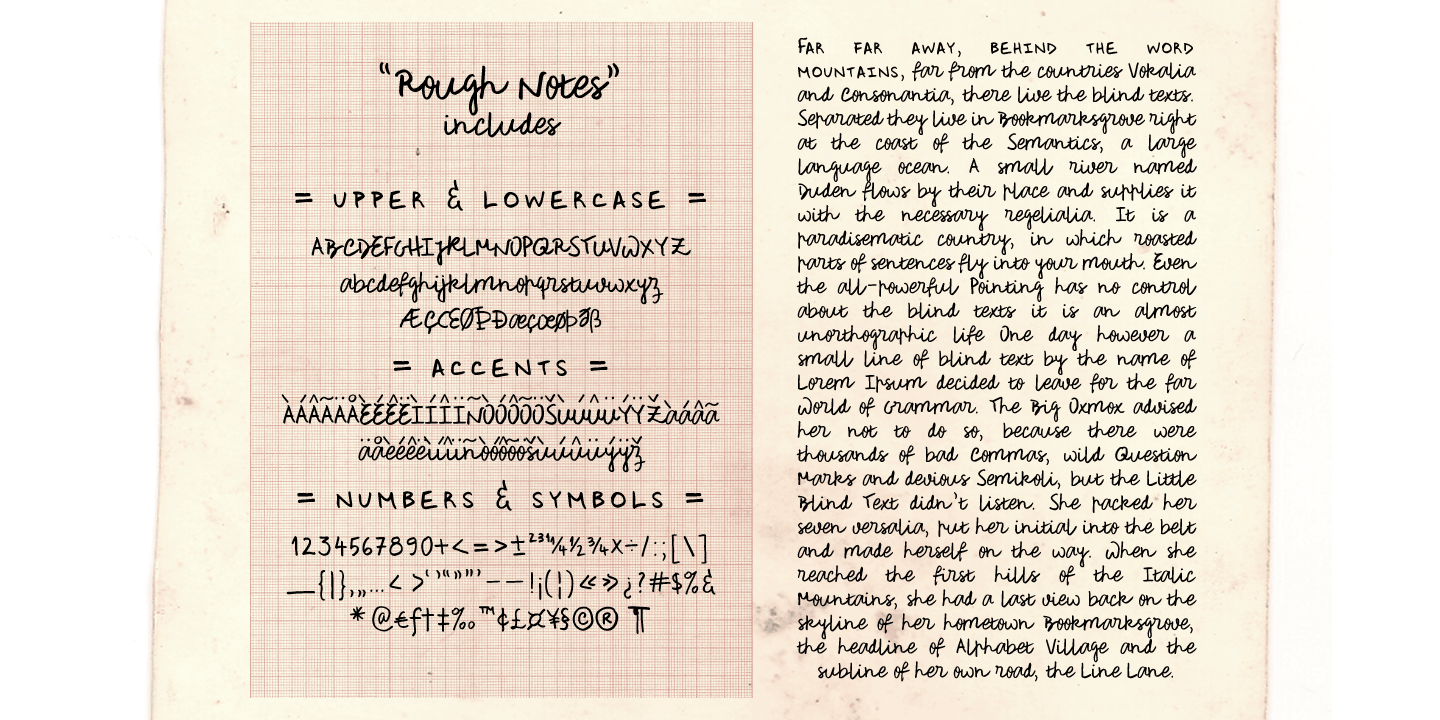 “Rough Notes”
includes
= UPPER & LOWERCASE =
ABCDEFGHIJKLMNOPQRSTUVWXYZ
abcdefghijklmnopqrstuvwxyz
ÆÇŒØÞÐæçœøþðß
= ACCENTS =
= NUMBERS & SYMBOLS =
1234567890+<=>±²³¹¼½¾×÷/:;[\]
_{|},„…‹›‘’“”"'–—!¡(¦)«»¿?#$%&
*@€ƒ†‡‰™¢£¤¥§©® ¶
FAR FAR AWAY, BEHIND THE WORD
MOUNTAINS, far from the countries Vokalia
and Consonantia, there live the blind texts.
Separated they live in Bookmarksgrove right
at the coast of the Semantics, a large
language ocean. A small river named
Duden flows by their place and supplies it
with the necessary regelialia. It is a
paradisematic country, in which roasted
parts of sentences fly into your mouth. Even
the all-powerful Pointing has no control
about the blind texts it is an almost
unorthographic life One day however a
small line of blind text by the name of
Lorem Ipsum decided to leave for the far
World of Grammar. The Big Oxmox advised
her not to do so, because there were
thousands of bad Commas, wild Question
Marks and devious Semikoli, but the Little
Blind Text didn't listen. She packed her
seven versalia, put her initial into the belt
and made herself on the way. When she
reached the first hills of the Italic
Mountains, she had a last view back on the
skyline of her hometown Bookmarksgrove,
the headline of Alphabet Village and the
subline of her own road, the Line Lane.